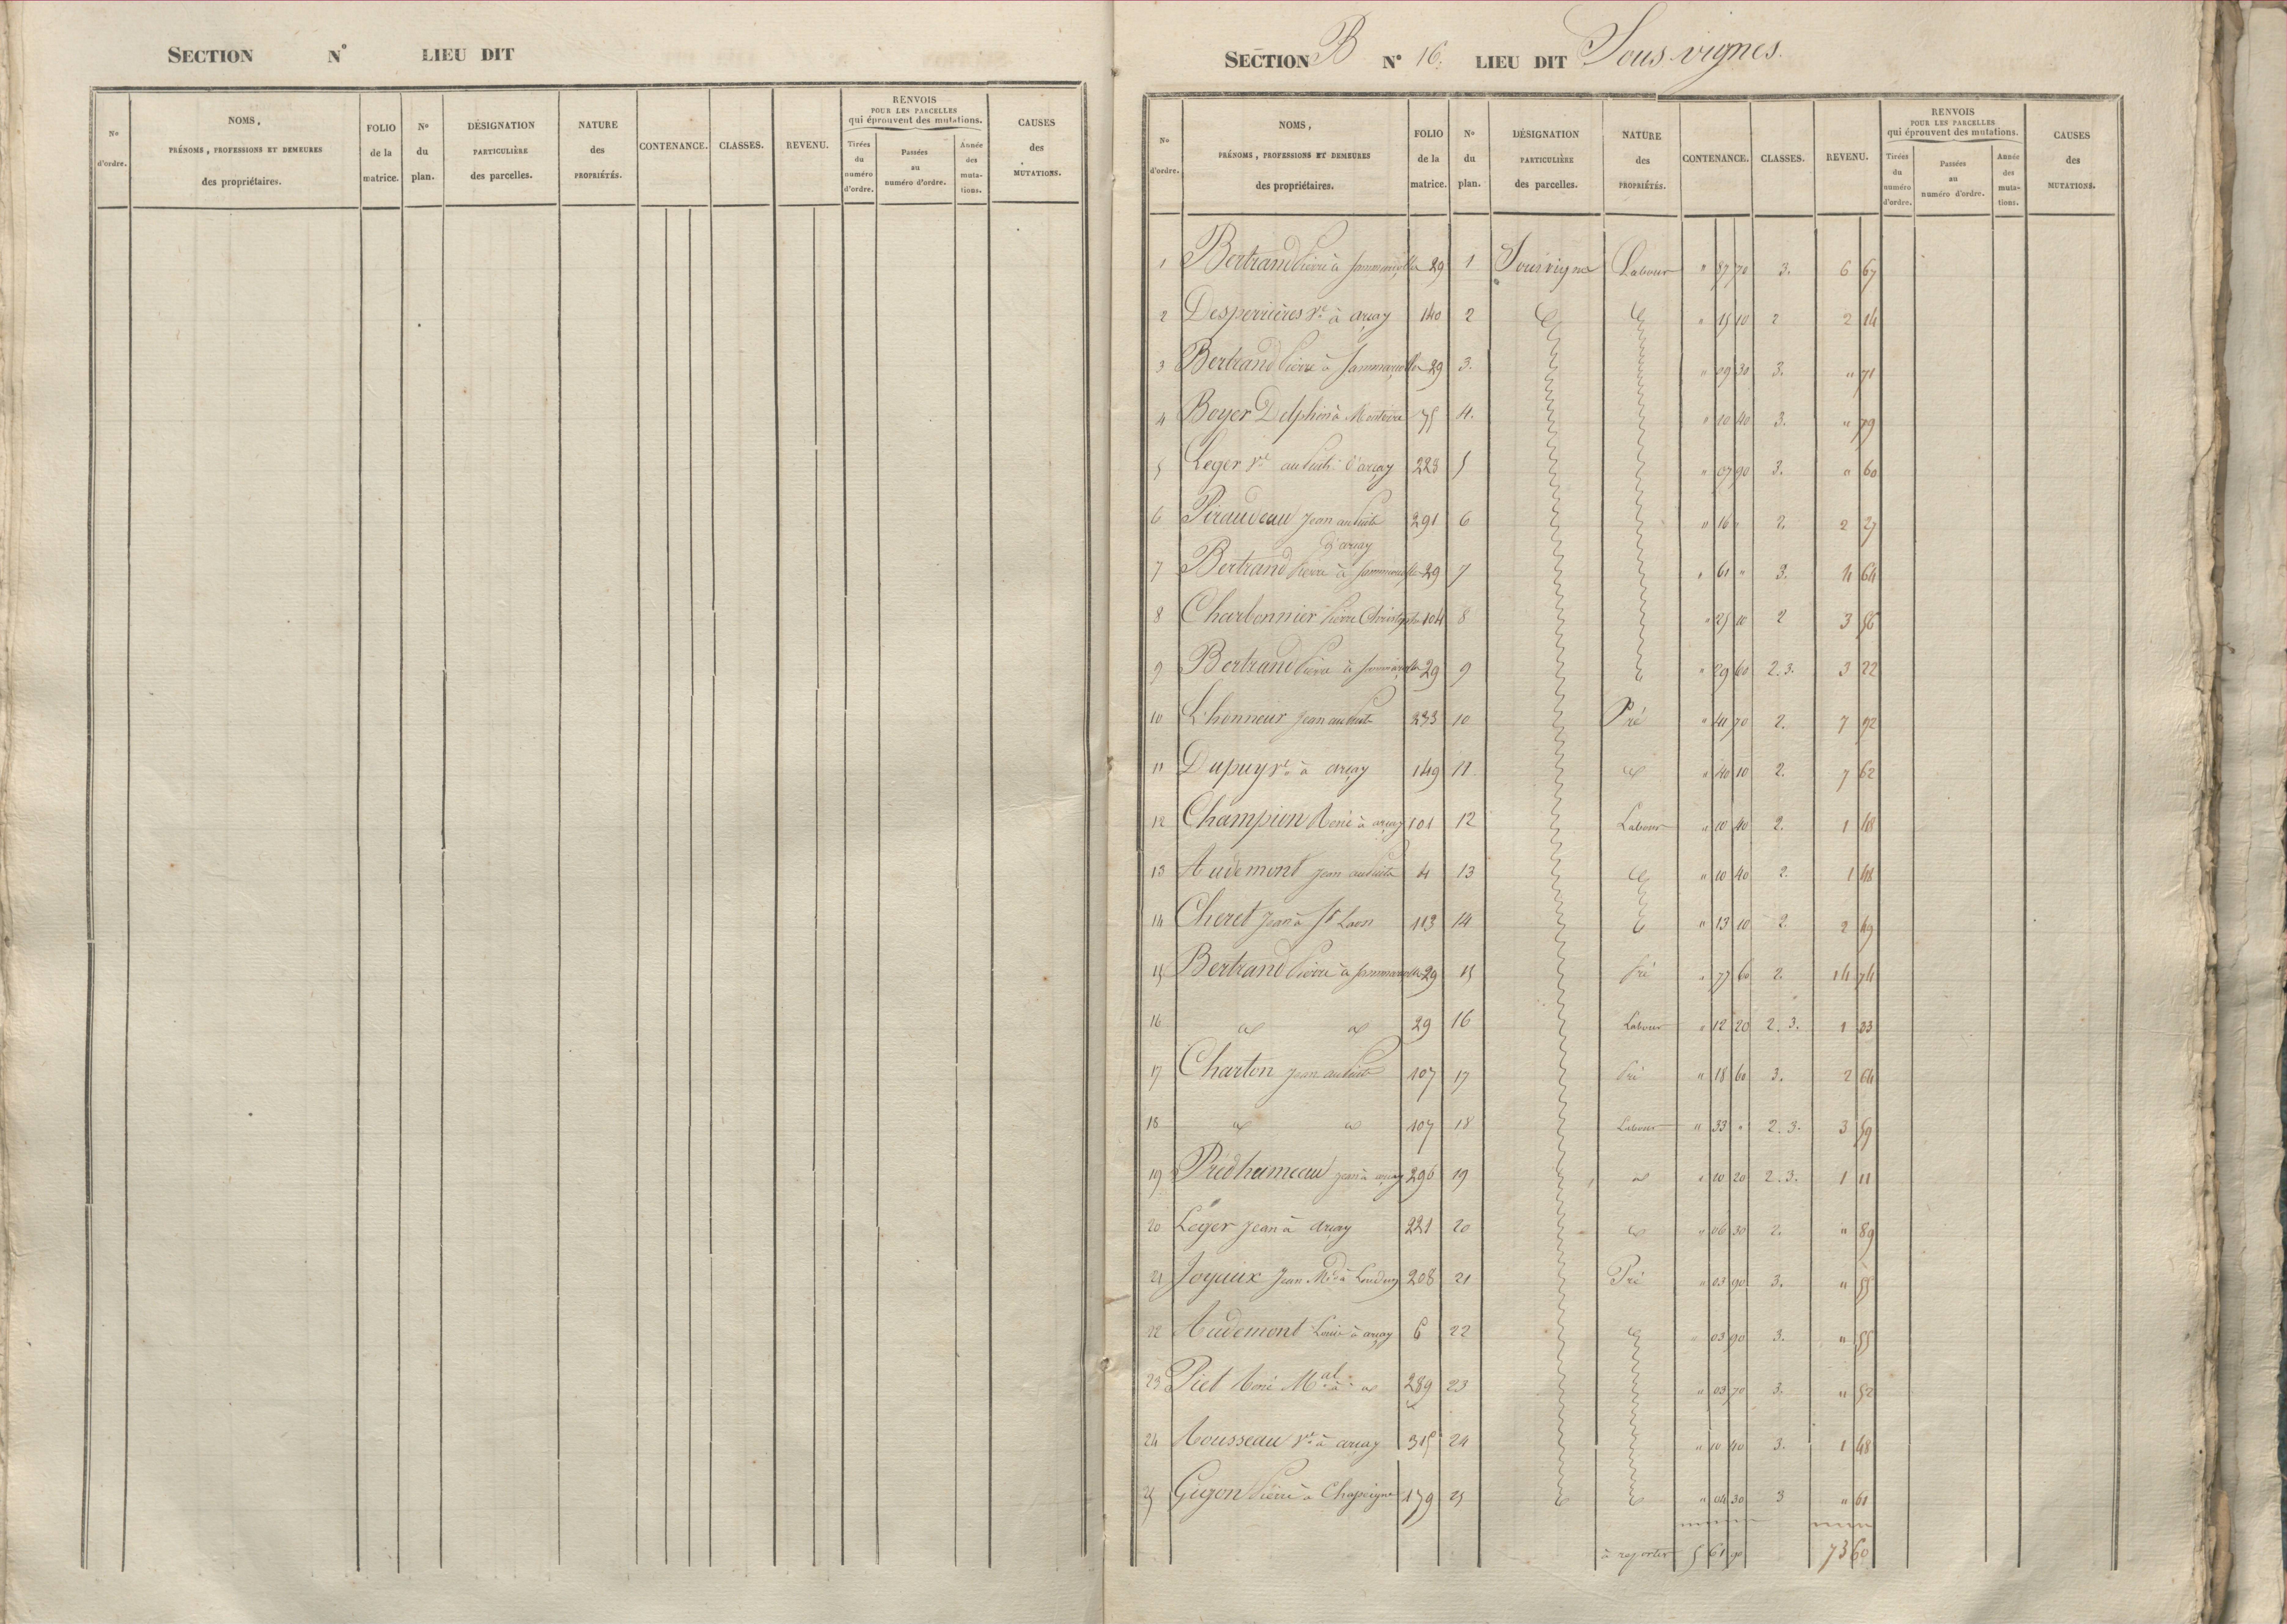 SECTION N° LIEU DIT
No d'ordre. NOMS, PRÉNOMS, PROFESSIONS ET DEMEURES des propriétaires. FOLIO de la matrice. No du plan. DÉSIGNATION PARTICULIÈRE des parcelles. NATURE des PROPRIÉTÉS. CONTENANCE. CLASSES. REVENU. RENVOIS POUR LES PARCELLES qui éprouvent des mutations. Tirées du numéro d'ordre. Passées au numéro d'ordre. Année des muta-tions. CAUSES des MUTATIONS.
SECTION B N° 16. LIEU DIT Sous vignes.
No d'ordre. NOMS, PRÉNOMS, PROFESSIONS ET DEMEURES des propriétaires. FOLIO de la matrice. No du plan. DÉSIGNATION PARTICULIÈRE des parcelles. NATURE des PROPRIÉTÉS. CONTENANCE. CLASSES. REVENU. RENVOIS POUR LES PARCELLES qui éprouvent des mutations. Tirées du numéro d'ordre. Passées au numéro d'ordre. Année des muta-tions. CAUSES des MUTATIONS.
1 Bertrand Pierre à 29 1 Sousvigne Labour " 87 70 3. 6 67
2 Desperrières Ve à arçay 140 2 " 15 10 2 2 14
3 Bertrand Pierre à 29 3. " 09 30 3. " 71
4 Boyer Delphin à 75 4. " 10 40 3. " 79
5 Leger Ve au Puits d'arçay 223 5 " 07 90 3. " 60
6 Piraudeau Jean au Puits d'arçay 291 6 " 16 " 2. 2 27
7 Bertrand Pierre à 29 7 " 61 " 3. 4 64
8 Charbonnier Pierre Christophe 104 8 " 25 10 2 3 56
9 Bertrand Pierre à 29 9 " 29 60 2.3. 3 22
10 L'honneur Jean au Puits 233 10 Pré " 41 70 2. 7 92
11 Dupuy Ve à arçay 149 11. " 40 10 2. 7 62
12 Champion René à arçay 101 12 Labour " 10 40 2. 1 48
13 Audemont Jean au Puits 4 13 " 10 40 2. 1 48
14 Cheret Jean à St Laon 113 14 " 13 10 2.
15 Bertrand Pierre à 29 15 Pré " 77 60 2. 14 74
16 29 16 Labour " 12 20 2.3. 1 33
17 Charton Jean au Puits 107 17 Pré " 18 60 3. 2 64
18 107 18 Labour " 33 " 2.3. 3 59
19 Prédhumeau Jean à arçay 296 19 " 10 20 2.3. 1 11
20 Léger Jean à Arçay 221 20 " 06 30 2. " 89
21 Joyaux Jean Md à Loudun 208 21 Pré " 03 90 3. " 55
22 Audemont Louis à arçay 6 22 03 90 3. " 55
23 Piet René Mal à 289 23 " 03 70 3. " 52
24 Rousseau Ve à arçay 315 24 " 10 40 3. 1 48
25 Gigon Pierre à Chapeigne 179 25 " 04 30 3 " 61
à reporter 5 61 90 73 60